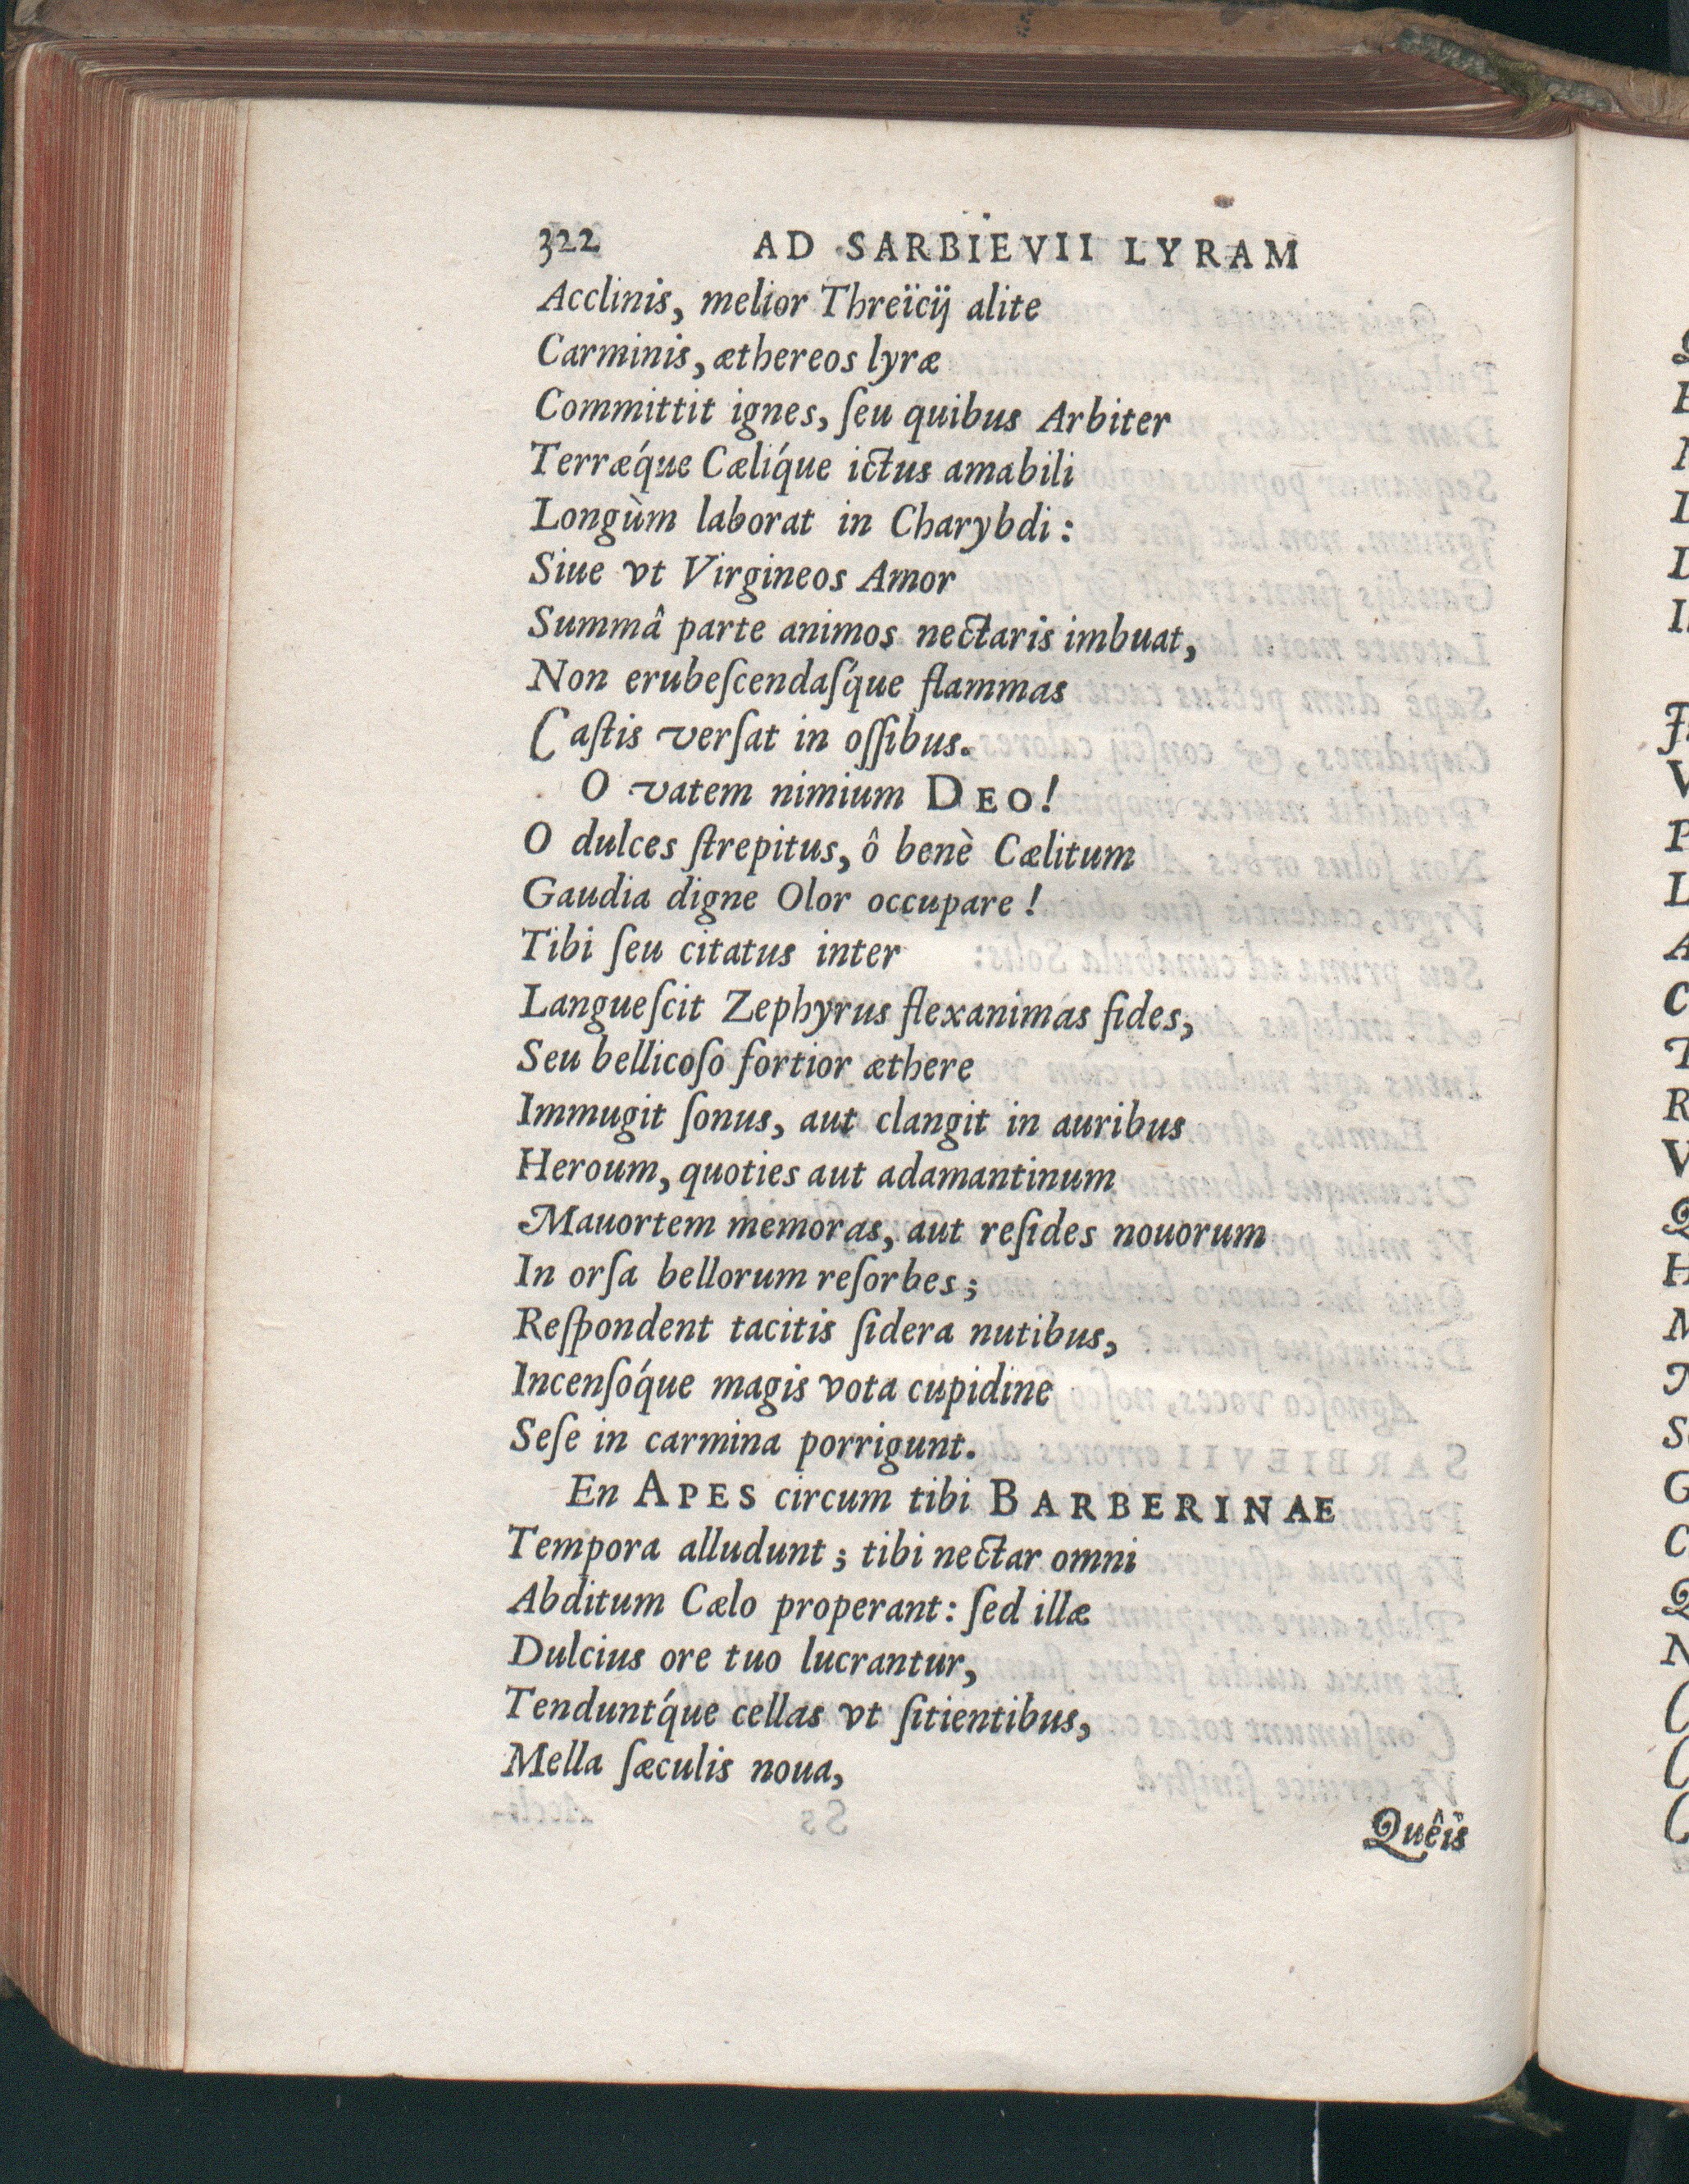 322 AD SARBIEVII LYRAM
Acclinis, melior Threïcij alite
Carminis, æthereos lyræ
Committit ignes, ſeu quibus Arbiter
Terræq́ue Cæliq́ue ictus amabili
Longùm laborat in Charybdi:
Siue vt Virgineos Amor
Summâ parte animos nectaris imbuat,
Non erubeſcendaſq́ue flammas
Caſtis verſat in oſſibus.
O vatem nimium DEO!
O dulces ſtrepitus, ô benè Cælitum
Gaudia digne Olor occupare!
Tibi ſeu citatus inter
Langueſcit Zephyrus flexanimas fides,
Seu bellicoſo fortior æthere
Immugit ſonus, aut clangit in auribus
Heroum, quoties aut adamantinum
Mauortem memoras, aut reſides nouorum
In orſa bellorum reſorbes;
Reſpondent tacitis ſidera nutibus,
Incenſóque magis vota cupidine
Seſe in carmina porrigunt.
En APES circum tibi BARBERINAE
Tempora alludunt; tibi nectar omni
Abditum Cælo properant: ſed illæ
Dulcius ore tuo lucrantur,
Tenduntq́ue cellas vt ſitientibus,
Mella ſæculis noua,
Quêis